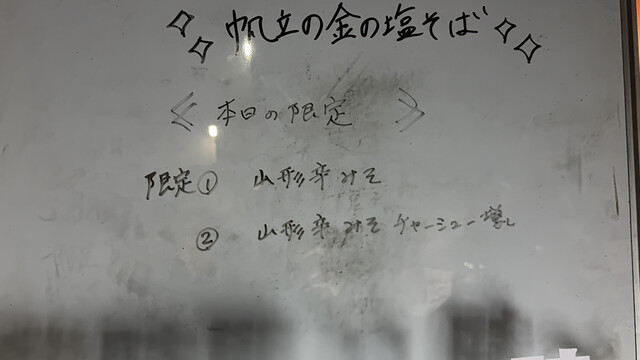 帆立の金の塩そば
≪ 本日の限定 ≫
限定① 山形辛みそ
② 山形辛みそチャーシュー増し